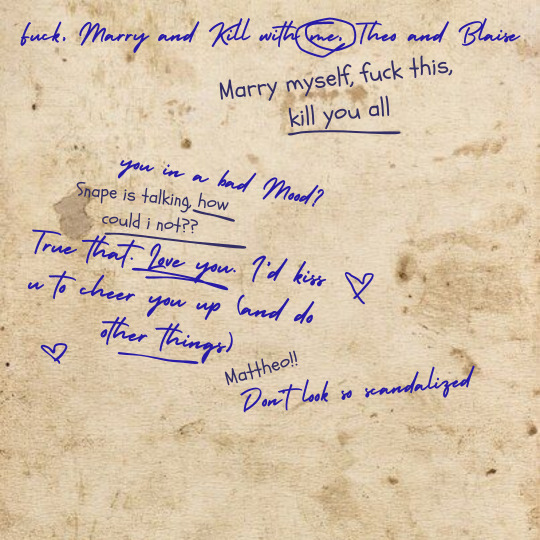 fuck, Marry and Kill with me, Theo and Blaise
Marry myself, fuck this,
kill you all
you in a bad Mood?
Snape is talking, how
could i not??
True that. Love you. I'd kiss
u to cheer you up (and do
other things)
Mattheo!!
Don't look so scandalized